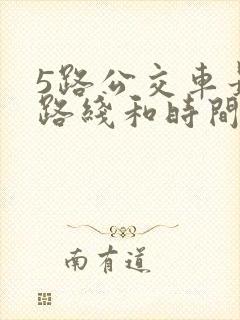 5路公交車
路綫和時間
南有道